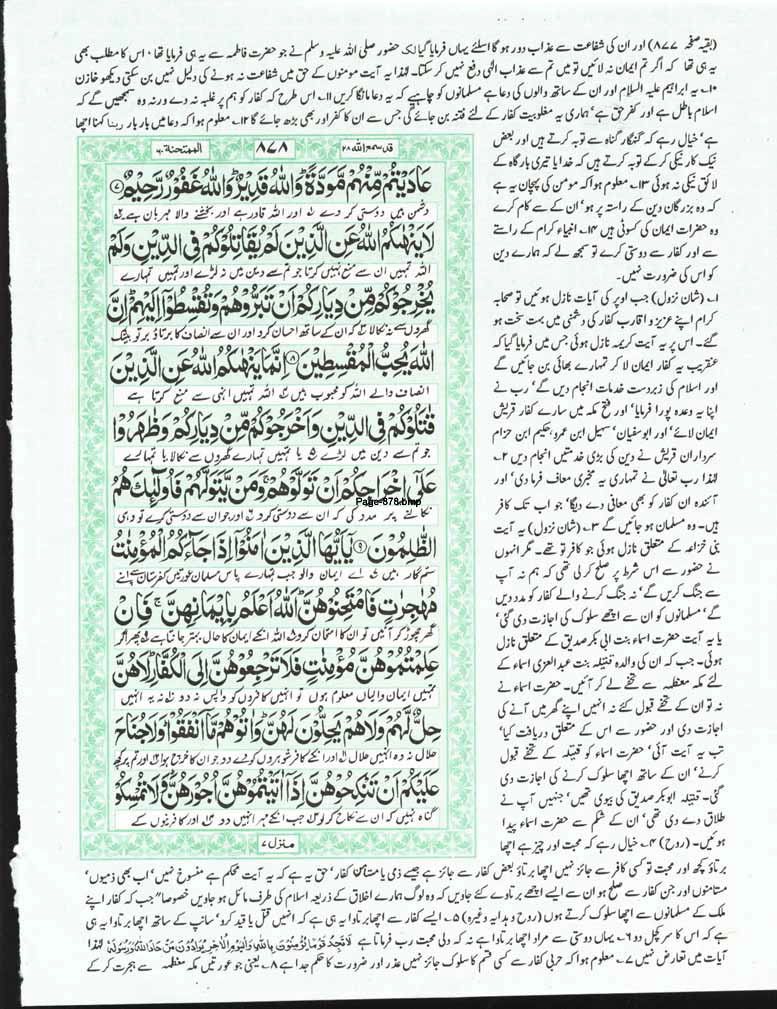 (بقیہ صفحہ ۸۷۷) اور ان کی شفاعت سے عذاب دور ہو گا اسلئے یہاں فرمایا گیا لک حضور صلی اللہ علیہ وسلم نے جو حضرت فاطمہ سے یہ ہی فرمایا تھا، اس کا مطلب بھی
یہ ہی تھا کہ اگر تم ایمان نہ لائیں تو میں تم سے عذاب الٰہی دفع نہیں کر سکتا۔ لہٰذا یہ آیت مومنوں کے حق میں شفاعت نہ ہونے کی دلیل نہیں بن سکتی دیکھو خازن
۱۰۔ یہ ابراہیم علیہ السلام اور ان کے ساتھ والوں کی دعا ہے مسلمانوں کو چاہیے کہ یہ دعا مانگا کریں ۱۱۔ اس طرح کہ کفار کو ہم پر غلبہ نہ دے ورنہ وہ سمجھیں گے کہ
اسلام باطل ہے اور کفر حق ہے' ہماری یہ مغلوبیت کفار کے لئے فتنہ بن جائے گی جس سے ان کا کفر اور بھی بڑھ جائے گا ۱۲۔ معلوم ہوا کہ دعا میں بار بار ربنا کہنا اچھا
ہے' خیال رہے کہ گنہگار گناہ سے توبہ کرتے ہیں اور بعض
نیک کار نیکی کر کے توبہ کرتے ہیں کہ خدایا تیری بارگاہ کے
لائق نیکی نہ ہوئی ۱۳۔ معلوم ہوا کہ مومن کی پہچان یہ ہے
کہ وہ بزرگان دین کے راستہ پر ہو' ان کے سے کام کرے
وہ حضرات ایمان کی کسوٹی ہیں ۱۴۔ انبیاء کرام کے راستے
سے اور کفار سے دوستی کرے تو سمجھ لے کہ ہمارے دین
کو اس کی ضرورت نہیں۔
۱۔ (شان نزول) جب اوپر کی آیات نازل ہوئیں تو صحابہ
کرام اپنے عزیز و اقارب کفار کی دشمنی میں بہت سخت ہو
گئے۔ اس پر یہ آیت کریمہ نازل ہوئی جس میں فرمایا گیا کہ
عنقریب یہ کفار ایمان لا کر تمہارے بھائی بن جائیں گے
اور اسلام کی زبردست خدمات انجام دیں گے' رب نے
اپنا یہ وعدہ پورا فرمایا' اور فتح مکہ میں سارے کفار قریش
ایمان لائے' اور ابوسفیان' سہیل ابن عمرو' حکیم ابن حزام
سرداران قریش نے دین کی بڑی خدمتیں انجام دیں ۲۔
لہٰذا رب تعالیٰ نے تمہاری یہ مخبری معاف فرما دی' اور
آئندہ ان کفار کو بھی معافی دے دیگا' جو اب تک کافر
ہیں۔ وہ مسلمان ہو جائیں گے ۳۔ (شان نزول) یہ آیت
بنی خزاعہ کے متعلق نازل ہوئی جو کافر تو تھے۔ مگر انہوں
نے حضور سے اس شرط پر صلح کر لی تھی کہ ہم نہ آپ
سے جنگ کریں گے' نہ جنگ کرنے والے کفار کو مدد دیں
گے' مسلمانوں کو ان سے اچھے سلوک کی اجازت دی گئی'
یا یہ آیت حضرت اسماء بنت ابی بکر صدیق کے متعلق نازل
ہوئی۔ جب کہ ان کی والدہ قتیلہ بنت عبدالعزی اسماء کے
لئے مکہ معظمہ سے تحفے لے کر آئیں۔ حضرت اسماء نے
نہ تو ان کے تحفے قبول کئے نہ انہیں اپنے گھر میں آنے کی
اجازت دی اور حضور سے اس کے متعلق دریافت کیا'
تب یہ آیت آئی' حضرت اسماء کو قتیلہ کے تحفے قبول
کرنے' ان کے ساتھ اچھا سلوک کرنے کی اجازت دی
گئی۔ قتیلہ ابوبکر صدیق کی بیوی تھیں' جنہیں آپ نے
طلاق دے دی تھی' ان کے شکم سے حضرت اسماء پیدا
ہوئیں۔ (روح) ۴۔ خیال رہے کہ محبت اور چیز ہے اچھا
قد سمع اللہ ۲۸ ۸۷۸ الممتحنة ۶۰
عَادَيْتُمْ مِّنْهُمْ مَّوَدَّةً وَاللّٰهُ قَدِيْرٌ وَاللّٰهُ غَفُوْرٌ رَّحِيْمٌ ۷
دشمن ہیں دوستی کر دے اور اللہ قادر ہے اور بخشنے والا مہربان ہے
لَا يَنْهٰىكُمُ اللّٰهُ عَنِ الَّذِيْنَ لَمْ يُقَاتِلُوْكُمْ فِي الدِّيْنِ وَلَمْ
اللہ تمہیں ان سے منع نہیں کرتا جو تم سے دین میں نہ لڑے اور تمہیں تمہارے
يُخْرِجُوْكُمْ مِّنْ دِيَارِكُمْ اَنْ تَبَرُّوْهُمْ وَتُقْسِطُوْٓا اِلَيْهِمْ اِنَّ
گھروں سے نہ نکالا کہ ان کے ساتھ احسان کرو اور ان سے انصاف کا برتاؤ برتو بیشک
اللّٰهَ يُحِبُّ الْمُقْسِطِيْنَ ۸ اِنَّمَا يَنْهٰىكُمُ اللّٰهُ عَنِ الَّذِيْنَ
انصاف والے اللہ کو محبوب ہیں اللہ تمہیں انہی سے منع کرتا ہے
قٰتَلُوْكُمْ فِي الدِّيْنِ وَاَخْرَجُوْكُمْ مِّنْ دِيَارِكُمْ وَظٰهَرُوْا
جو تم سے دین میں لڑے یا تمہیں تمہارے گھروں سے نکالا یا تمہارے
عَلٰٓى اِخْرَاجِكُمْ اَنْ تَوَلَّوْهُمْ وَمَنْ يَّتَوَلَّهُمْ فَاُولٰٓئِكَ هُمُ
Page-878.bmp
نکالنے پر مدد کی کہ ان سے دوستی کرو اور جو ان سے دوستی کرے تو وہی
الظّٰلِمُوْنَ ۹ يٰٓاَيُّهَا الَّذِيْنَ اٰمَنُوْٓا اِذَا جَآءَكُمُ الْمُؤْمِنٰتُ
ستم گار ہیں اے ایمان والو جب تمہارے پاس مسلمان عورتیں کفرستان سے اپنے
مُهٰجِرٰتٍ فَامْتَحِنُوْهُنَّ اَللّٰهُ اَعْلَمُ بِاِيْمَانِهِنَّ فَاِنْ
گھر چھوڑ کر آئیں تو ان کا امتحان کرو اللہ انکے ایمان کا حال بہتر جانتا ہے پھر اگر
عَلِمْتُمُوْهُنَّ مُؤْمِنٰتٍ فَلَا تَرْجِعُوْهُنَّ اِلَى الْكُفَّارِ لَا هُنَّ
تمہیں ایمان والیاں معلوم ہوں تو انہیں کافروں کو واپس نہ دو نہ یہ انہیں
حِلٌّ لَّهُمْ وَلَا هُمْ يَحِلُّوْنَ لَهُنَّ وَاٰتُوْهُمْ مَّآ اَنْفَقُوْا وَلَا جُنَاحَ
حلال نہ وہ انہیں حلال اور انکے کافر شوہروں کو دے دو جو ان کا خرچ ہوا اور تم پر کچھ
عَلَيْكُمْ اَنْ تَنْكِحُوْهُنَّ اِذَآ اٰتَيْتُمُوْهُنَّ اُجُوْرَهُنَّ وَلَا تُمْسِكُوْا
گناہ نہیں کہ ان سے نکاح کر لو جب انکے مہر انہیں دو اور کافرنیوں کے
منزل ۷
برتاؤ کچھ اور محبت تو کسی کافر سے جائز نہیں اچھا برتاؤ بعض کفار سے جائز ہے جیسے ذمی یا مستأمن کفار' حق یہ ہے کہ یہ آیت محکم ہے منسوخ نہیں' اب بھی ذمیوں'
مستامنوں اور جن کفار سے صلح ہو ان سے ایسے اچھے برتاوے کئے جاویں کہ وہ لوگ ہمارے اخلاق کے ذریعہ اسلام کی طرف مائل ہو جاویں خصوصا" جب کہ کفار اپنے
ملک کے مسلمانوں سے اچھا سلوک کرتے ہوں (روح و ہدایہ وغیرہ) ۵۔ ایسے کفار سے اچھا برتاوا یہ ہی ہے کہ انہیں قتل یا قید کرو' سانپ کے ساتھ اچھا برتاوا یہ ہی
ہے کہ اس کا سر کچل دو ۶۔ یہاں دوستی سے مراد اچھا برتاوا ہے نہ کہ دلی محبت رب فرماتا ہے لَا تَجِدُ قَوْمًا يُّؤْمِنُوْنَ بِاللّٰهِ وَالْيَوْمِ الْاٰخِرِ يُوَآدُّوْنَ مَنْ حَآدَّ اللّٰهَ وَرَسُوْلَهٗ لہٰذا
آیات میں تعارض نہیں ۷۔ معلوم ہوا کہ حربی کفار سے کسی قسم کا سلوک جائز نہیں عذر اور ضرورت کا حکم جدا ہے ۸۔ یعنی جو عورتیں مکہ معظمہ سے ہجرت کر کے